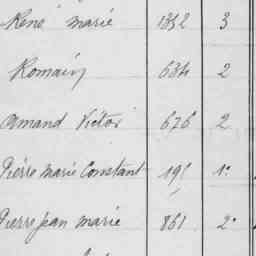 René Marie 1352 3
Romain 634 2
Armand Victor 676 2
Pierre Marie Constant 1º
Pierre Jean Marie 861 2º